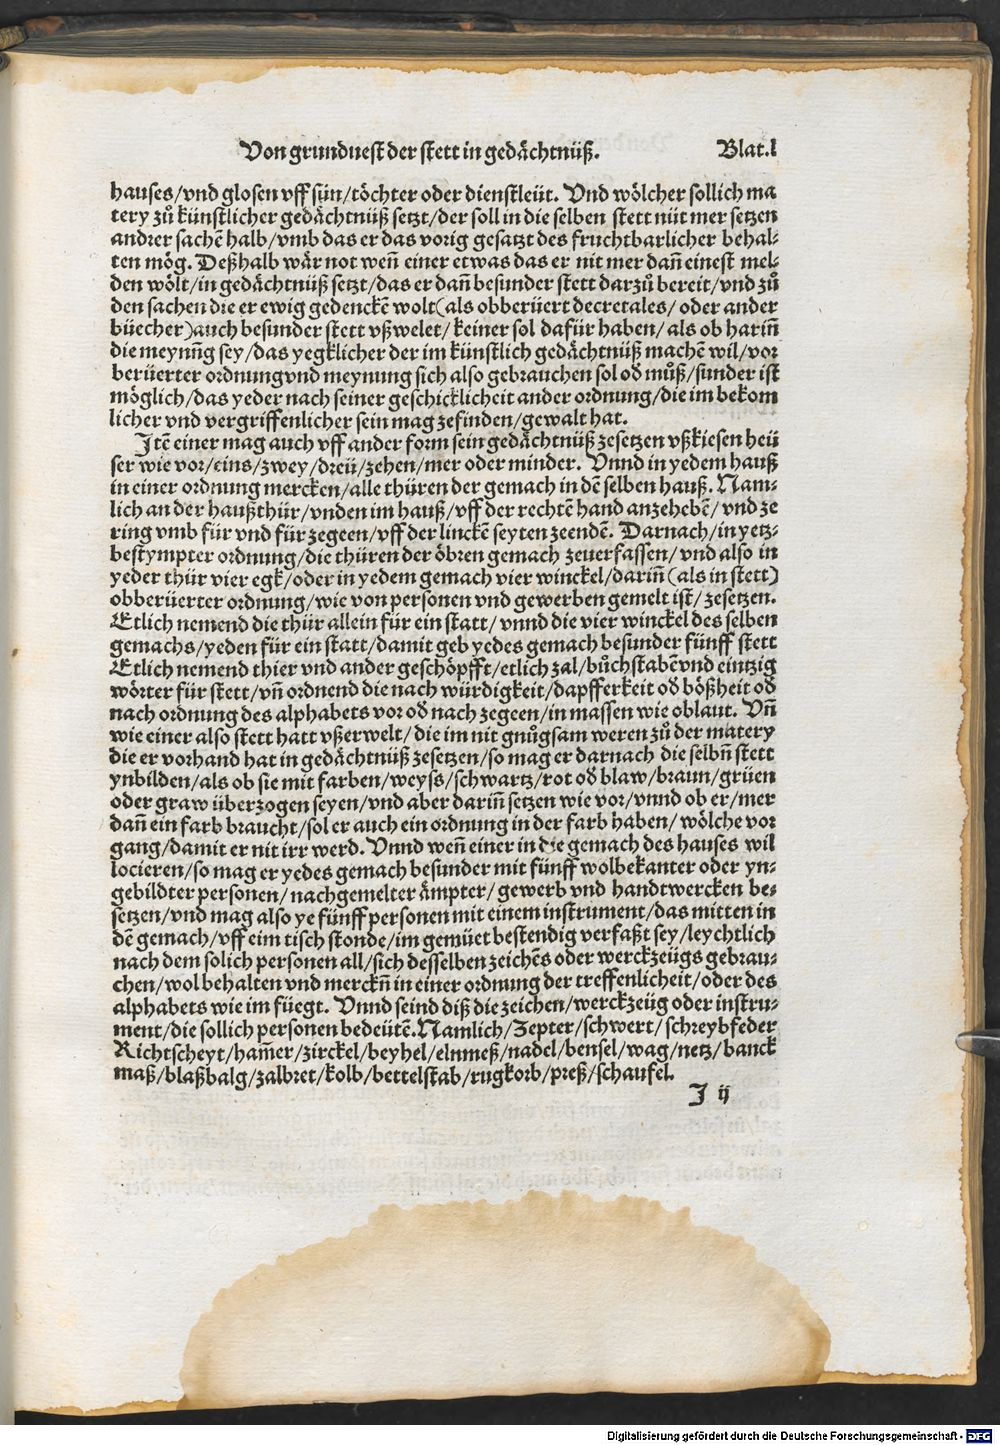 Von grunduest der stett in gedächtnüß. Blat.l
hauses/vnd glosen vff sün/töchter oder dienstleüt. Vnd wölcher sollich ma
tery zů künstlicher gedächtnüß setzt/der soll in die selben stett nüt mer setzen
andrer sachē halb/vmb das er das vorig gesatzt des fruchtbarlicher behal⸗
ten mög. Deßhalb wär not weñ einer etwas das er nit mer dañ einest mel⸗
den wölt/in gedächtnüß setzt/das er dañ besunder stett darzů bereit/vnd zů
den sachen die er ewig gedenckē wolt(als obberüert decretales/oder ander
büecher)auch besunder stett vßwelet/keiner sol dafür haben/als ob hariñ
die meynũg sey/das yegklicher der im künstlich gedächtnüß machē wil/vor
berüerter ordnungvnd meynung sich also gebrauchen sol od můß/sunder ist
möglich/das yeder nach seiner geschicklicheit ander ordnung/die im bekom
licher vnd vergriffenlicher sein mag zefinden/gewalt hat.
Itē einer mag auch vff ander form sein gedächtnüß zesetzen vßkiesen heü
ser wie vor/eins/zwey/dreü/zehen/mer oder minder. Vnnd in yedem hauß
in einer ordnung mercken/alle thüren der gemach in dē selben hauß. Nam⸗
lich an der haußthür/vnden im hauß/vff der rechtē hand anzehebē/vnd ze
ring vmb für vnd für zegeen/vff der linckē seyten zeendē. Darnach/in yetz⸗
bestympter ordnung/die thüren der öbren gemach zeuerfassen/vnd also in
yeder thür vier egk/oder in yedem gemach vier winckel/dariñ(als in stett)
obberüerter ordnung/wie von personen vnd gewerben gemelt ist/zesetzen.
Etlich nemend die thür allein für ein statt/vnnd die vier winckel des selben
gemachs/yeden für ein statt/damit geb yedes gemach besunder fünff stett
Etlich nemend thier vnd ander geschöpfft/etlich zal/bůchstabēvnd eintzig
wörter für stett/vñ ordnend die nach würdigkeit/dapfferkeit od bößheit od
nach ordnung des alphabets vor od nach zegeen/in massen wie oblaut. Vñ
wie einer also stett hatt vßerwelt/die im nit gnůgsam weren zů der matery
die er vorhand hat in gedächtnüß zesetzen/so mag er darnach die selbñ stett
ynbilden/als ob sie mit farben/weyss/schwartz/rot od blaw/braun/grüen
oder graw überzogen seyen/vnd aber dariñ setzen wie vor/vnnd ob er/mer
dañ ein farb braucht/sol er auch ein ordnung in der farb haben/wölche vor
gang/damit er nit irr werd. Vnnd weñ einer in die gemach des hauses wil
locieren/so mag er yedes gemach besunder mit fünff wolbekanter oder yn⸗
gebildter personen/nachgemelter ämpter/gewerb vnd handtwercken be⸗
setzen/vnd mag also ye fünff personen mit einem instrument/das mitten in
dē gemach/vff eim tisch stonde/im gemüet bestendig verfaßt sey/leychtlich
nach dem solich personen all/sich desselben zeichēs oder werckzeügs gebrau⸗
chen/wol behalten vnd merckñ in einer ordnung der treffenlicheit/oder des
alphabets wie im füegt. Vnnd seind diß die zeichen/werckzeüg oder instru⸗
ment/die sollich personen bedeütē.Namlich/Zepter/schwert/schreybfeder
Richtscheyt/ham̃er/zirckel/beyhel/elnmeß/nadel/bensel/wag/netz/banck
maß/blaßbalg/zalbret/kolb/bettelstab/rugkorb/preß/schaufel.
J ij
Digitalisierung gefördert durch die Deutsche Forschungsgemeinschaft - DFG